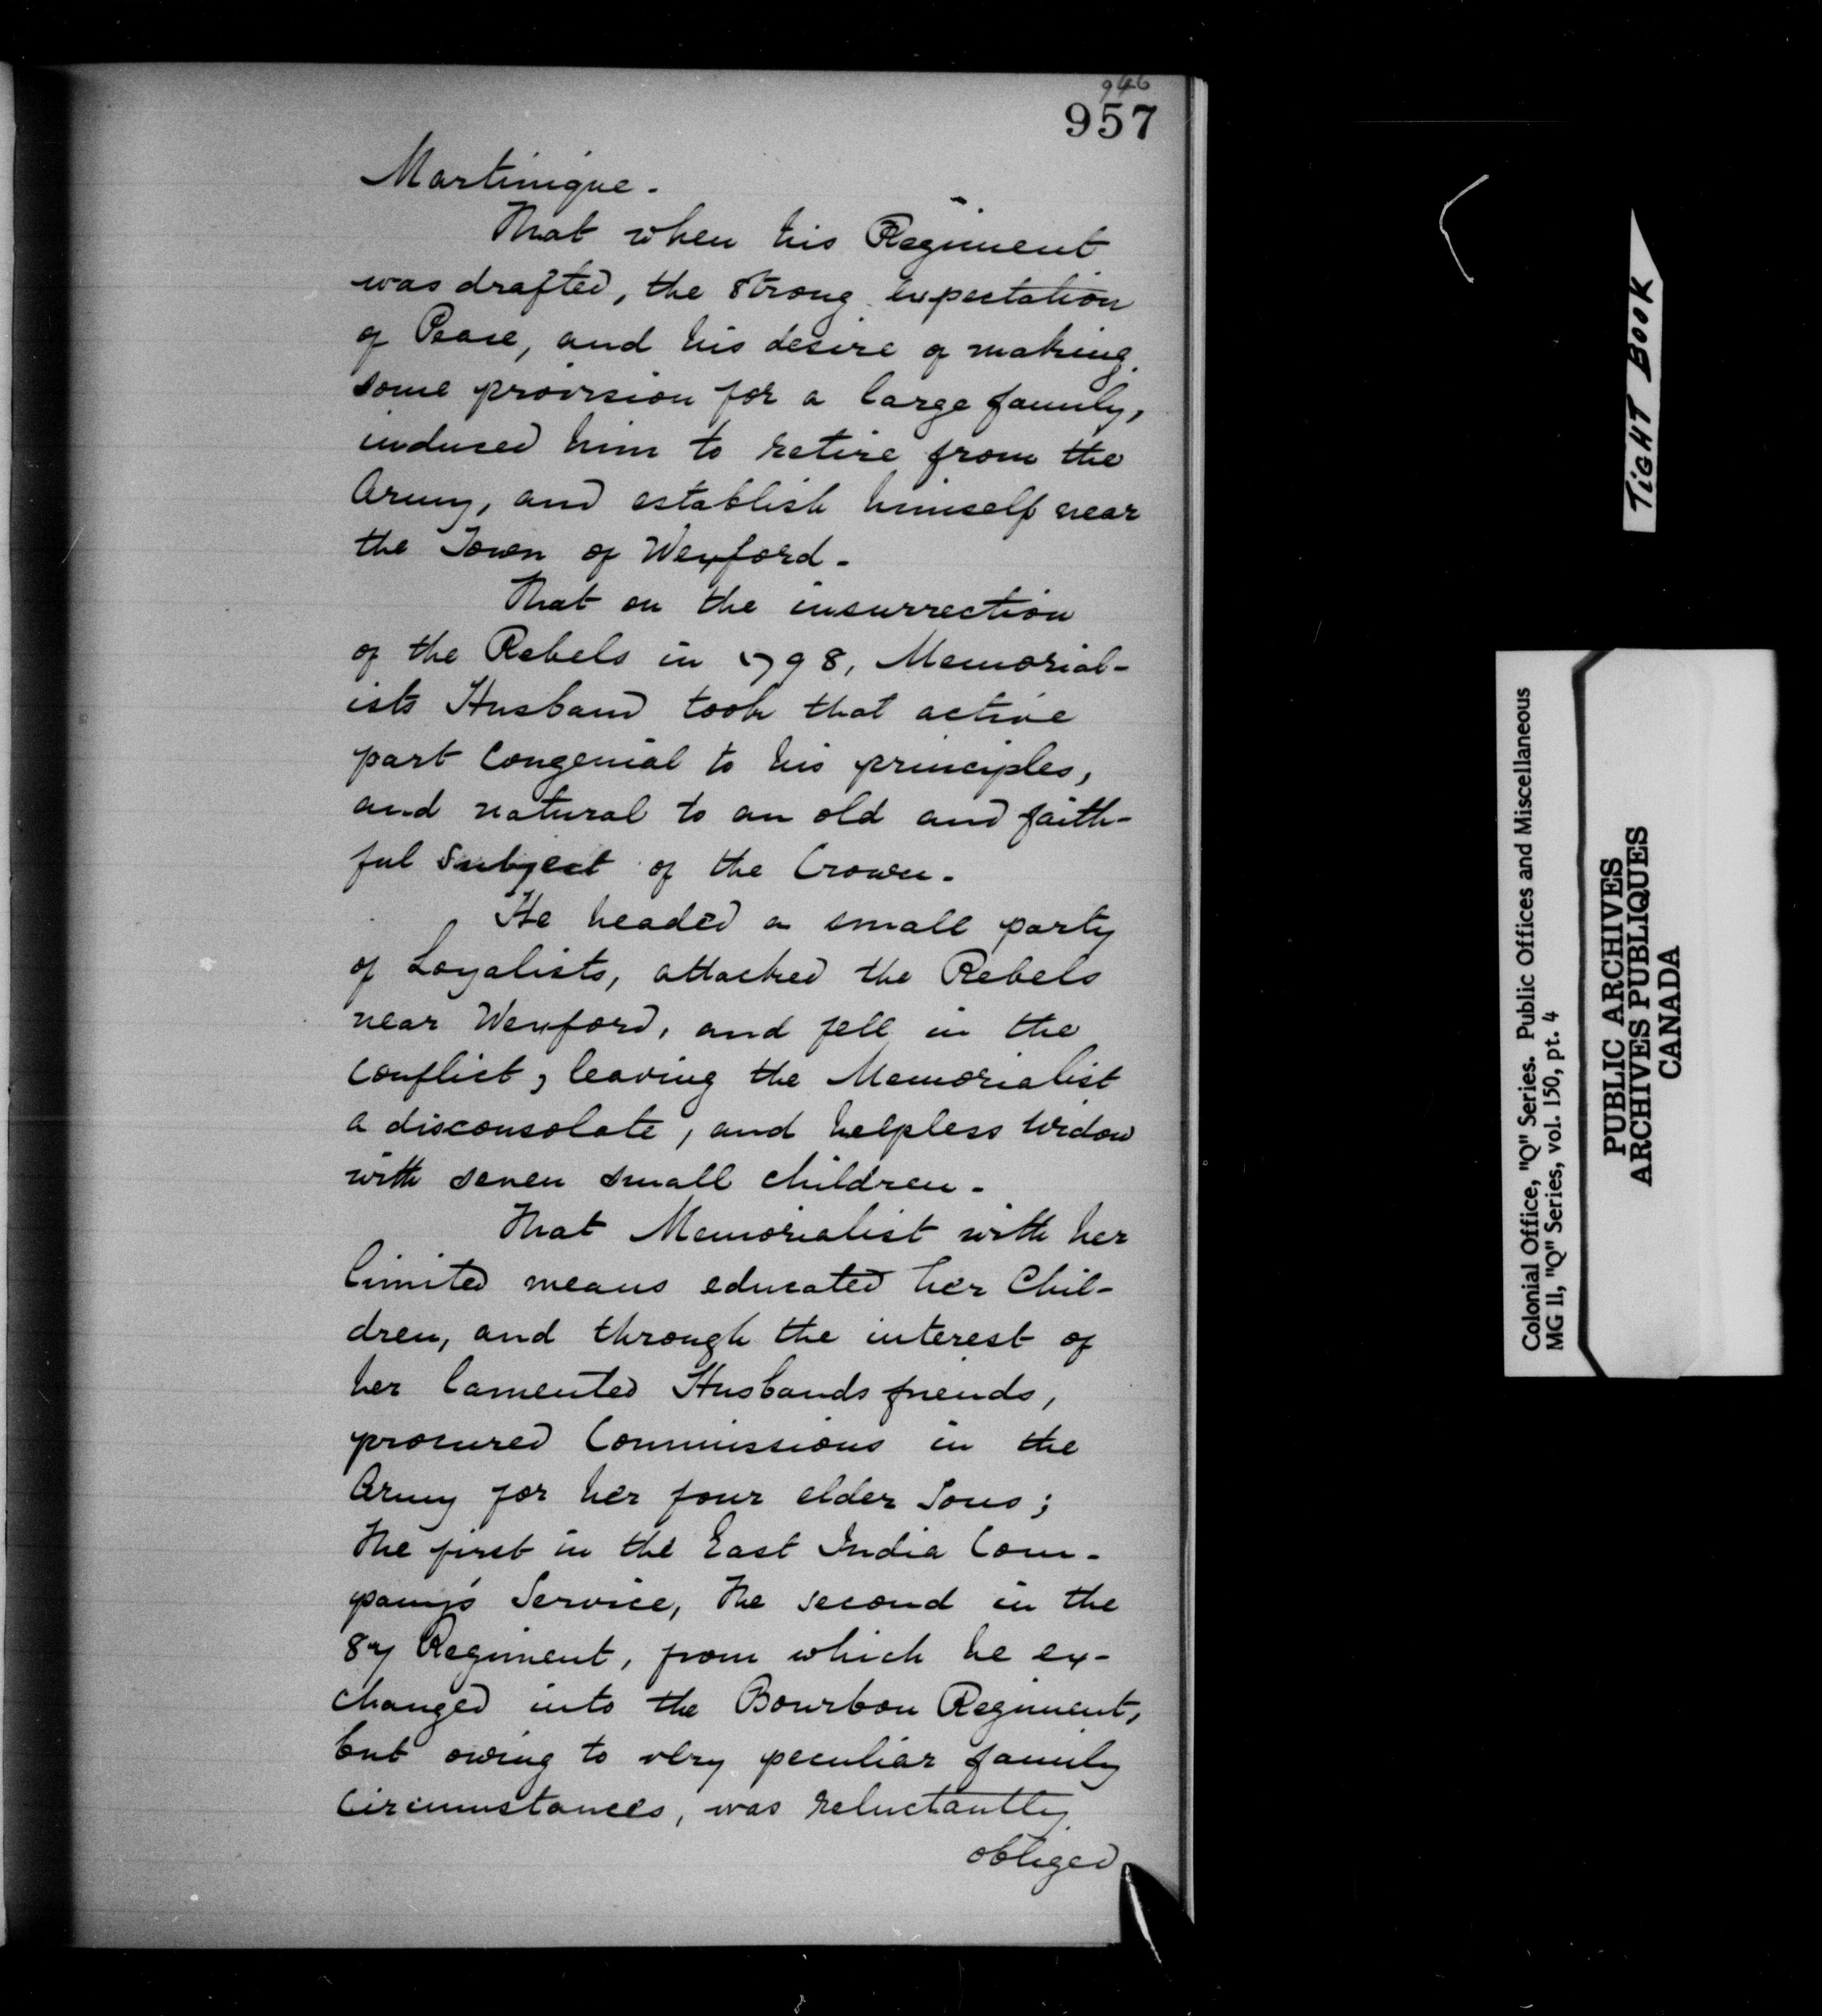 946
957
Martinique.
That when his Regiment
was drafted, the strong expectation
of Peace, and his desire of making
some provision for a large family,
induced him to retire from the
Army, and establish himself near
the Town of Wexford.
That on the insurrection
of the Rebels in 1798, Memorial-
ists Husband took that active
part congenial to his principles,
and natural to an old and faith-
ful Subject of the Crown.
He headed a small party
of Loyalists, attacked the Rebels
near Wexford, and fell in the
conflict, leaving the Memorialist
a disconsolate, and helpless Widow
with seven small children.
That Memorialist with her
limited means educated her Chil-
dren, and through the interest of
her lamented Husbands friends,
procured Commissions in the
Army for her four elder Sons;
The first in the East India Com-
pany's Service, The second in the
87 Regiment, from which he ex-
changed into the Bourbon Regiment,
but owing to very peculiar family
Circumstances, was reluctantly
obliged
TIGHT BOOK
Colonial Office, "Q" Series. Public Offices and Miscellaneous
MG 11, "Q" Series, vol. 150, pt. 4
PUBLIC ARCHIVES
ARCHIVES PUBLIQUES
CANADA